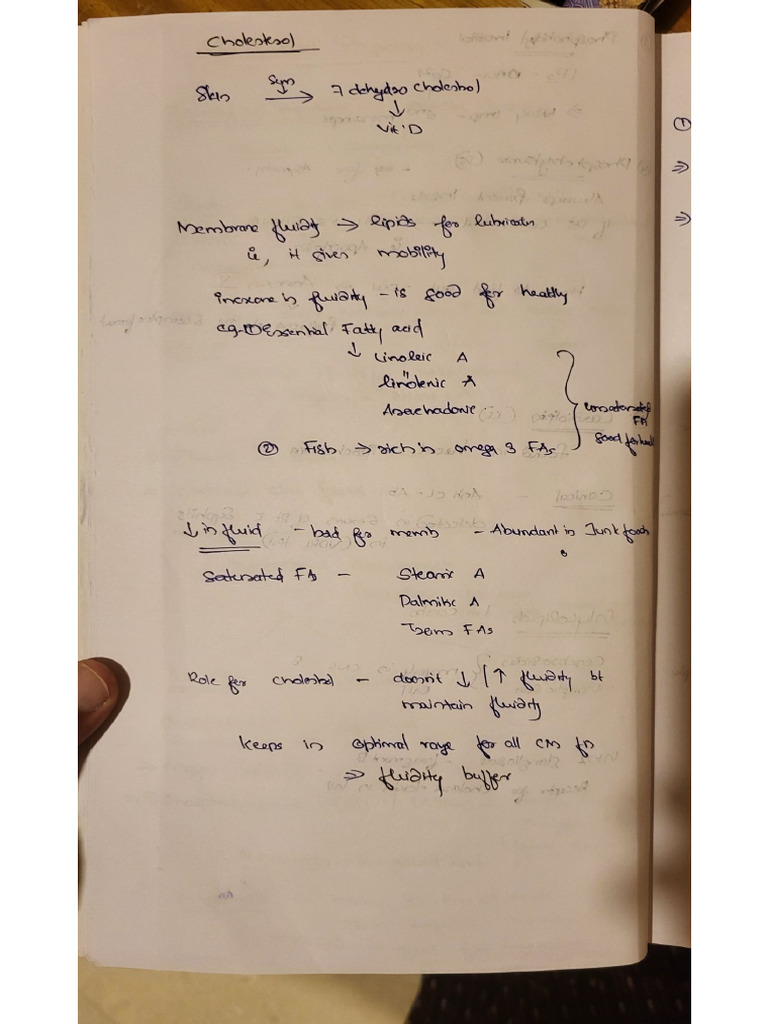 Cholesterol
Skin Syn → 7 dehydro cholesterol
↓
Vit D
Membrane fluidity → lipids for lubricatn
ie, it gives mobility
increase in fluidity - is good for healthy
eg-① Essential Fatty acid
↓ Linoleic A
linolenic A
Arachadonic
unsaturated
FA
good for health
② Fish → rich in omega 3 FAs
↓ in fluid - bad for memb - Abundant in Junk foods
Saturated FAs - Stearic A
Palmitic A
Trans FAs
Role for cholestrol - doesn't ↓ / ↑ fluidity bt
maintain fluidity
keeps in optimal range for all CM fn
⇒ fluidity buffer
①
⇒
⇒